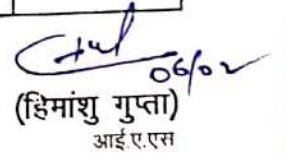 06/02
(हिमांशु गुप्ता)
आई.ए.एस